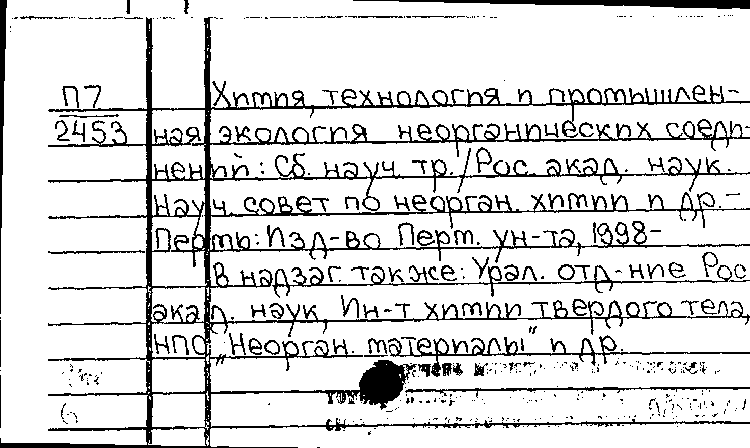 П7
2453
Химия, технология и промышлен-
ная экология неорганических соеди-
нений: Сб. науч. тр./Рос. акад. наук.
Науч. совет по неорган. химии и др.-
Пермь: Изд-во Перм. ун-та, 1998-
В надзаг. также: Урал. отд-ние Рос
акад. наук, Ин-т химии твердого тела,
НПО „Неорган. материалы" и др.
6